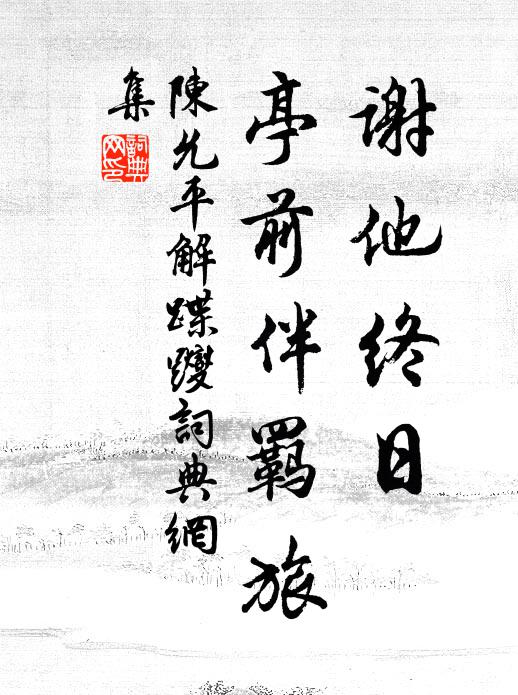 謝他終日
亭前伴羈旅
陳允平解蹀躞詞典網
集
詞典
网印